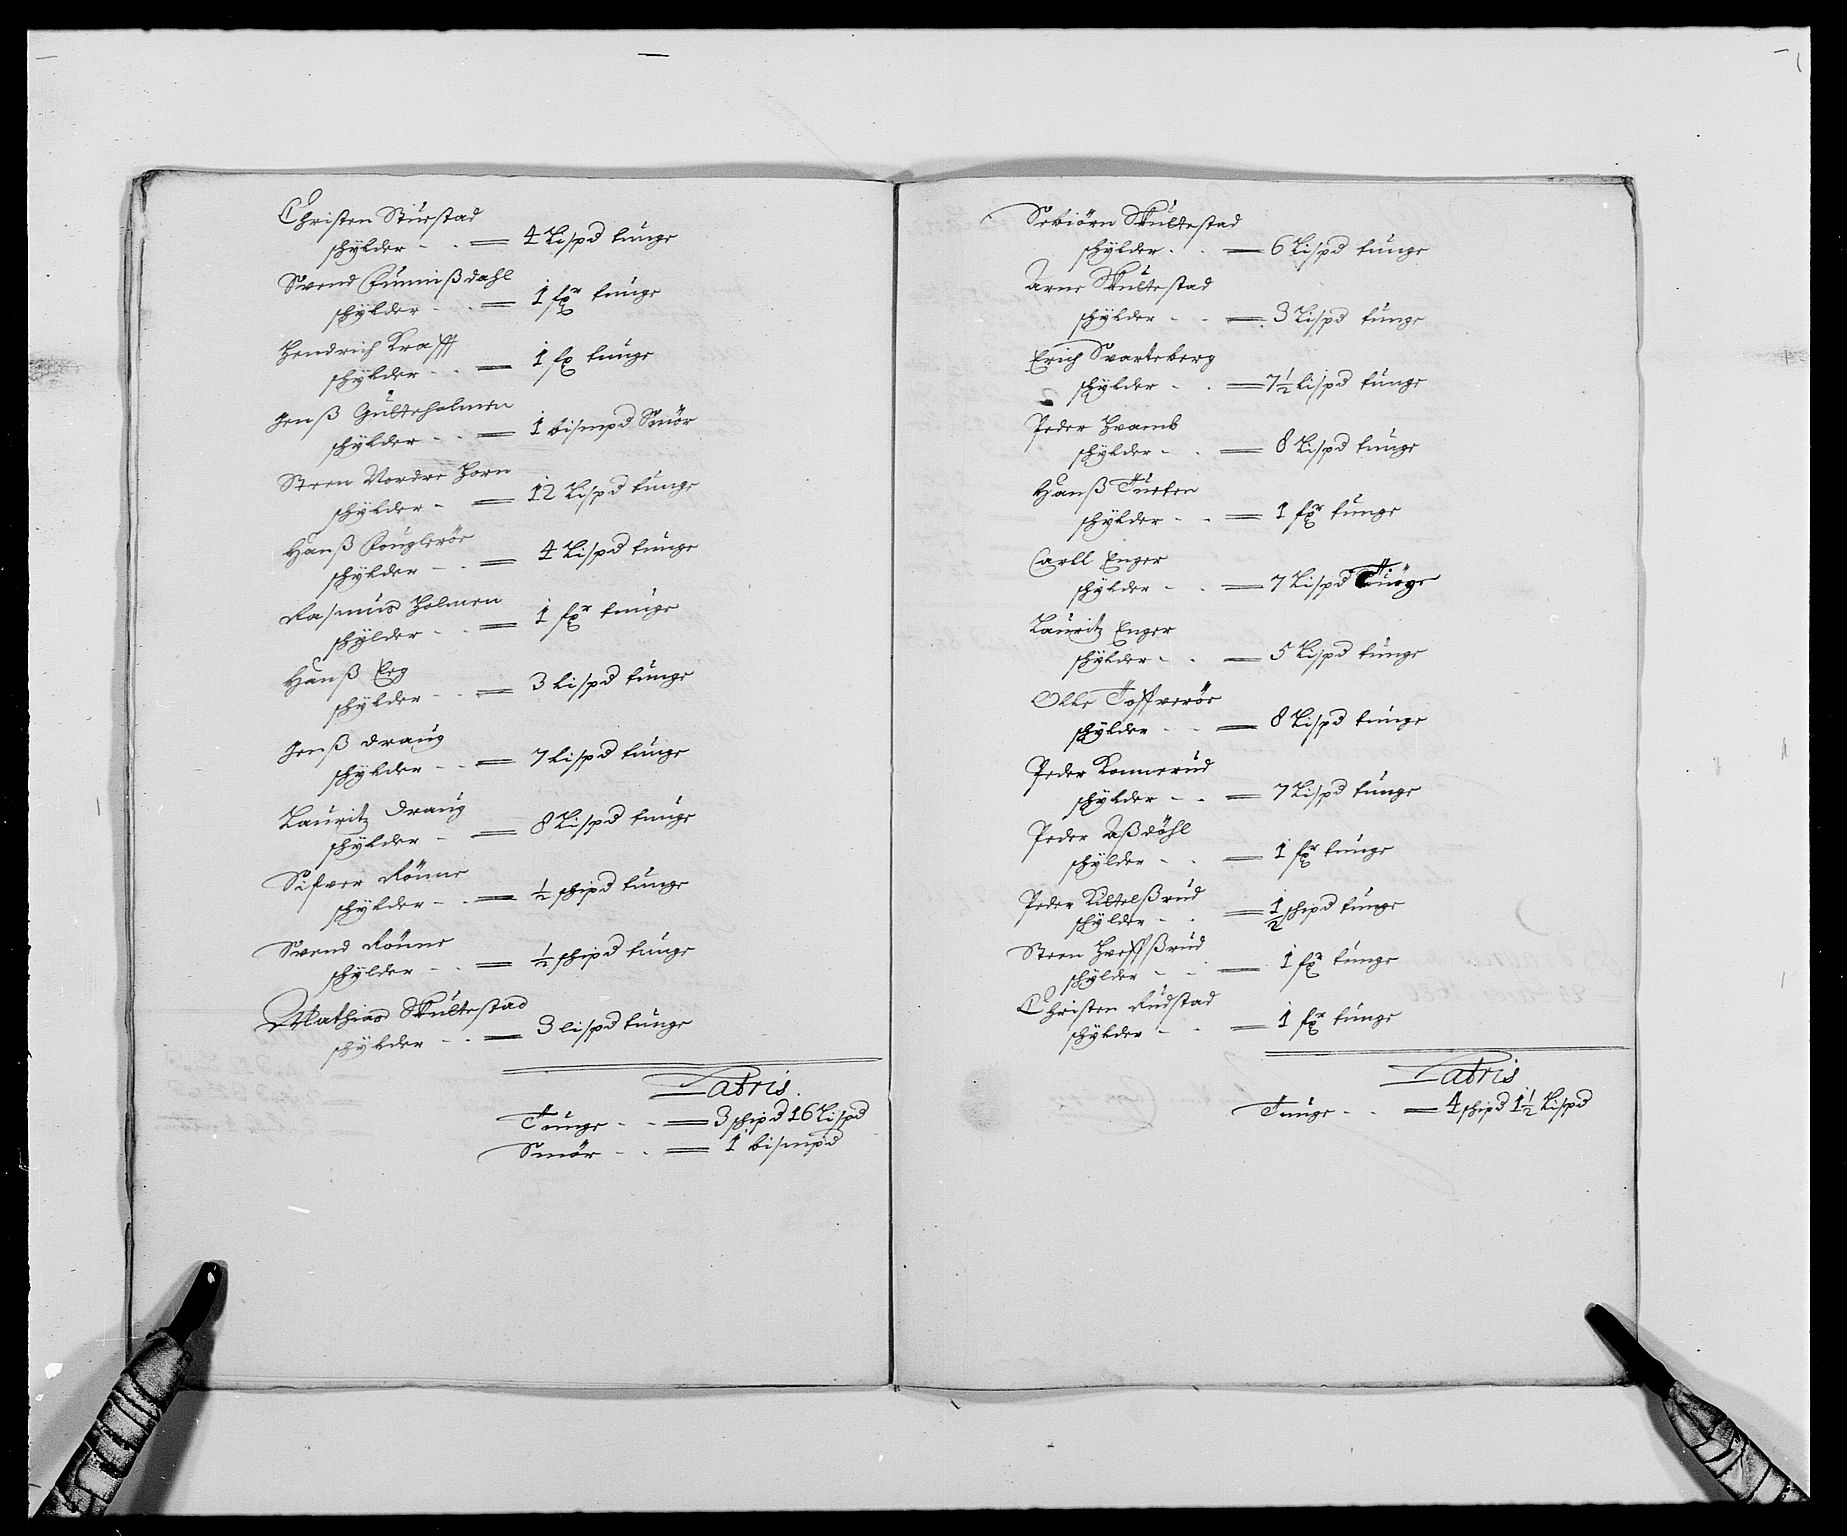 Christen Stuestad
schylder - - = 4 Lispd tunge
Svend Gunnißdahl
schylder - - = 1 fxr tunge
Hendrich Krafft
schylder - - = 1 fx tunge
Jenß Gulteholmen
schylder - - = 1 bismpd Smör
Steen Nordre Horn
schylder - = 12 Lispd tunge
Hanß Kouglerör
schylder - - = 4 Lispd tunge
Rasmus Holmen
schylder - - = 1 fxr tunge
Hanß Eeg
schylder - - = 3 Lispd tunge
Jenß Draug
schylder - - = 7 Lispd tunge
Lauritz Draug
schylder - = 8 Lispd tunge
Sifver Rönne
schylder - - = ½ schipd tunge
Svend Rönne
schylder - - = ½ schipd tunge
Mathias Skultestad
schylder - - = 3 lispd tunge
Latris.
Tunge - - = 3 schipd 16 Lispd
Smör - - = 1 bismpd
Sebiörn Skultestad
schylder - - = 6 Lispd tunge
Arne Skultestad
schylder - - = 3 Lispd tunge
Erich Svarteberg
schylder - - = 7½ Lispd tunge
Peder Hvamb
schylder - - = 8 Lispd tunge
Hanß Tueten
schylder - - = 1 fxr tunge
Carll Enger
schylder - - = 7 Lispd Tunge
Lauritz Enger
schylder - - = 5 Lispd tunge
Olle Toffverör
schylder - - = 8 Lispd tunge
Peder Konnerud
schylder - - = 7 Lispd tunge
Peder Aßdöhl
schylder - - = 1 fxr tunge
Peder Kittelßrud
schylder - - = ½ schipd tunge
Steen Hveffßrud
schylder - - = 1 fxr tunge
Christen Rudstad
schylder - - = 1 fxr tunge
Latris
Tunge - - = 4 schipd 1½ Lispd